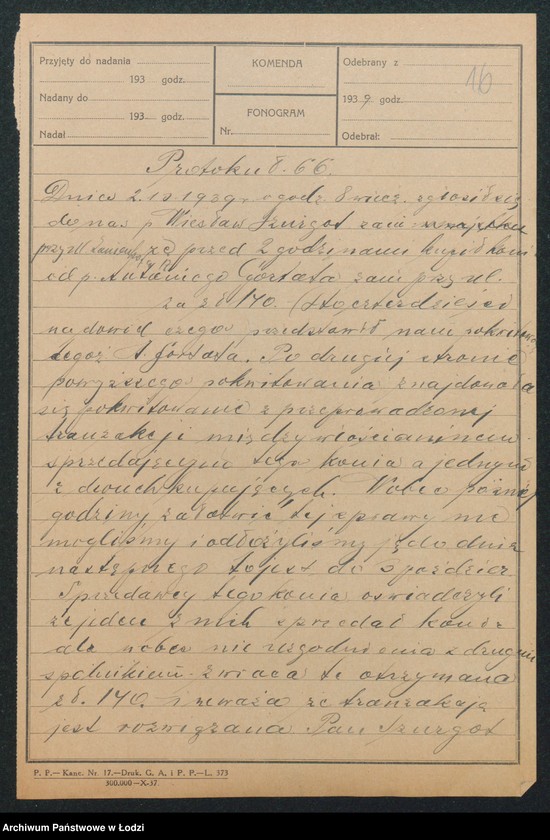 Przyjęty do nadania
193 godz.
Nadany do
193 godz.
Nadał
KOMENDA
FONOGRAM
Nr.
Odebrany z
1939 godz.
Odebrał:
16
Protokuł. 66.
Dnia 2.10.1939 o godz. 8 wiecz. zgłosił się
do nas p Wiesław Szurgot zam.
przy ul. że przed 2 godzinami kupił konia
od p. Antoniego Gortata zam przy ul.
za zł 140. (stoczterdzieści
na dowód czego przedstawił nam pokwitow
tegoż A. Gortata. Po drugiej stronie
powyższego pokwitowania znajdowała
się pokwitowanie z przeprowadzonej
tranzakcji między włościaninem
sprzedającym tego konia a jednym
z dwuch kupujących. Wobec późnej
godziny załatwić tej sprawy nie
mogliśmy i odłożyliśmy ją do dnia
następnego to jest do 3 paździer
Sprzedawcy tego konia oświadczyli
że jeden z nich sprzedał konia
ale wobec nie uzgodnienia z drugim
spólnikiem zwraca te otrzymana
zł. 140. i uważa że tranzakcja
jest rozwiązana Pan Szurgot
P. P.— Kanc. Nr. 17.—Druk. G. A. i P. P.—L. 373
300.000—X-37.
Archiwum Państwowe w Łodzi